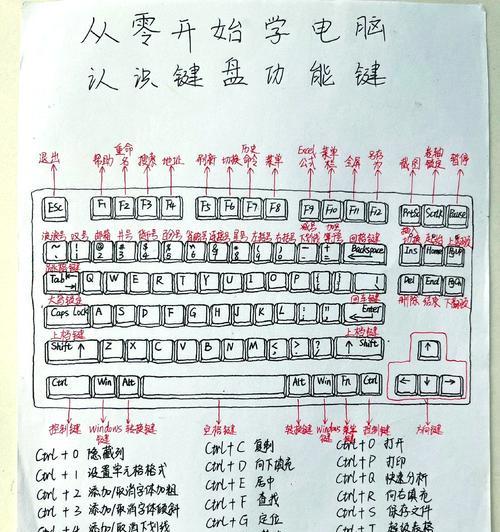 从零开始学电脑
认识键盘功能键
退出 帮助 重命名 搜索 地址 刷新 切换 历史命令 菜单 Excel公式 菜单栏 全屏 另存为 截图 卷轴锁定 暂停
Esc F1 F2 F3 F4 F5 F6 F7 F8 F9 F10 F11 F12 PrtSc ScrLk Pause
波浪号 叹号 邮箱 井号 货币号 百分号 省略号 连接号 星号 左括号 右括号 减号下划线 加号等号 回格键 插入切换 起始 上翻页
~ ` ! 1 @ 2 # 3 $ 4 % 5 ^ 6 & 7 * 8 ( 9 ) 0 - + = Backspace Ins Home PgUp
Tab Q W E R T Y U I O P { [ } ] | \ Del End PgDn
大写锁定 回车键 删除 结束 下翻页
Caps Lock A S D F G H J K L : ; " ' Enter
上档键 上档键
Shift ↑ Z X C V B N M < , > . ? / ↑ Shift ↑
Ctrl Win Alt Alt Win Fn Ctrl ← ↓ →
控制键 Windows键 转换键 空格键 转换键 Windows键 菜单键 控制键 方向键
Ctrl + 0 隐藏列 Ctrl + C 复制 Ctrl + O 打开
Ctrl + 1 设置单元格格式 Ctrl + D 向下填充 Ctrl + P 打印
Ctrl + 2 添加/取消字体加粗 Ctrl + E 居中 Ctrl + Q 快速分析
Ctrl + 3 添加/取消字体倾斜 Ctrl + F 查找 Ctrl + R 向右填充
Ctrl + 4 添加/取消下划线 Ctrl + G 定位 Ctrl + S 保存文件